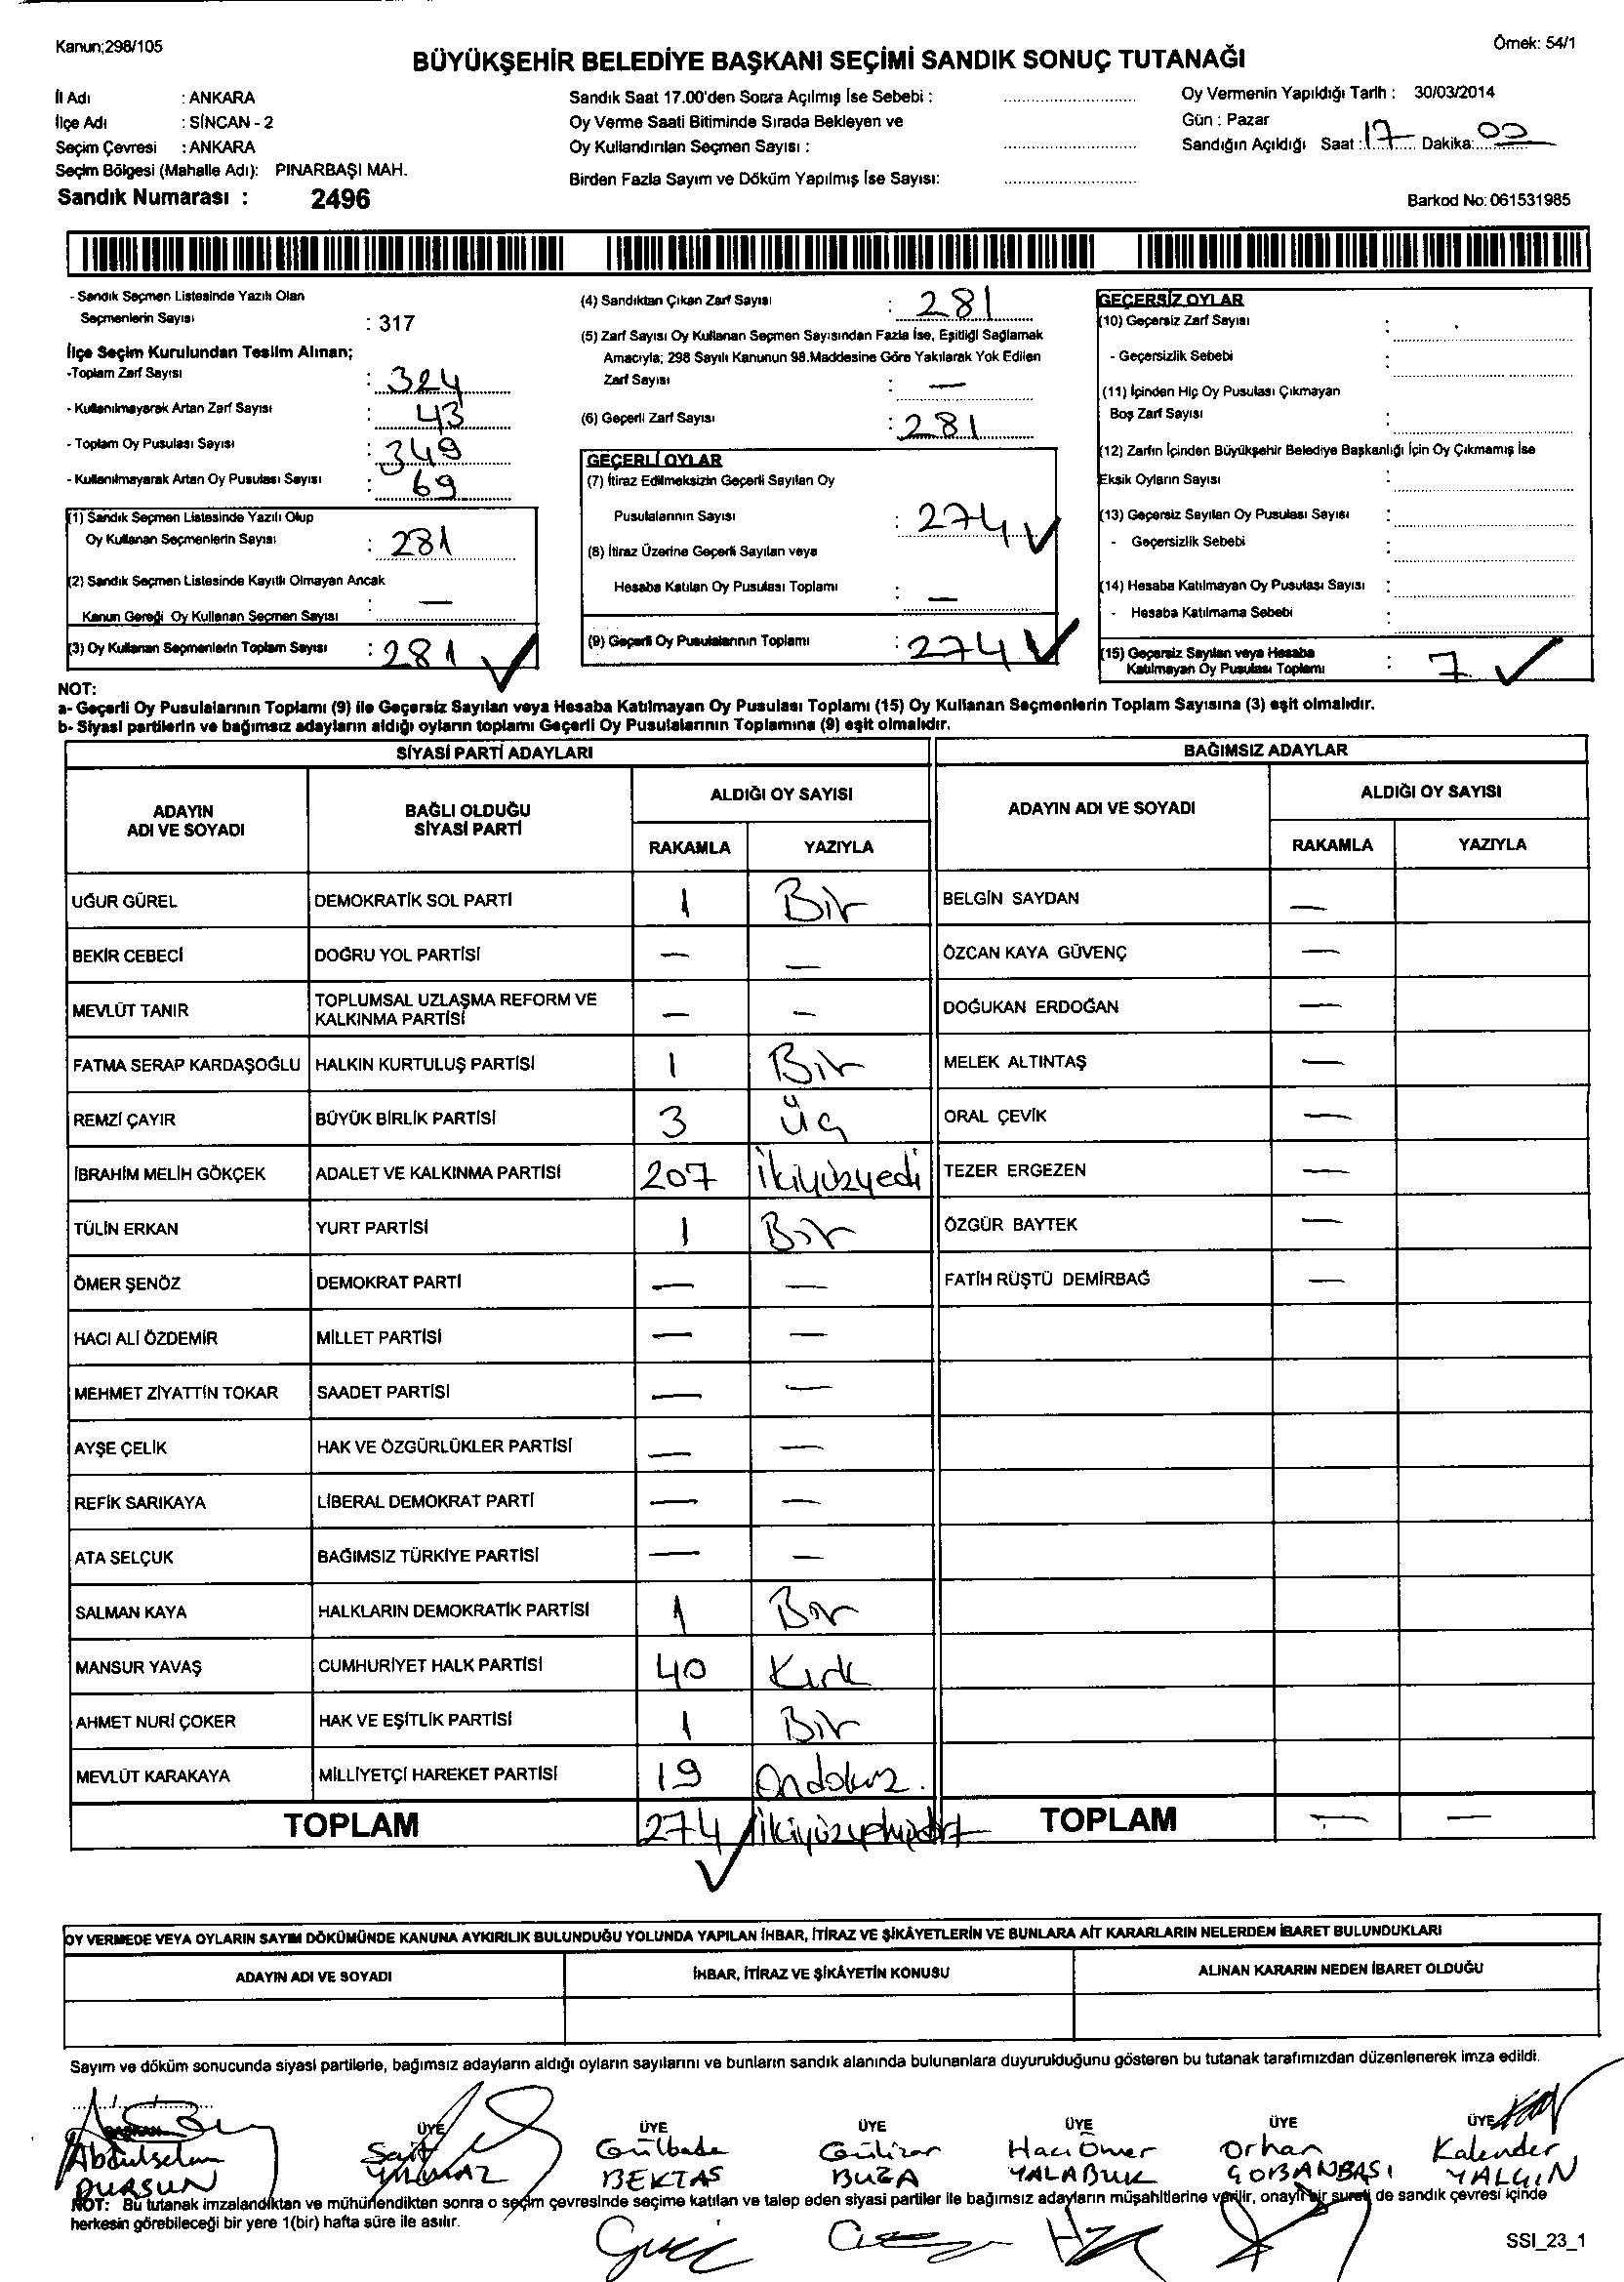 Kanun;298/105
Örnek: 54/1
BÜYÜKŞEHİR BELEDİYE BAŞKANI SEÇİMİ SANDIK SONUÇ TUTANAĞI
İl Adı : ANKARA
İlçe Adı : SİNCAN - 2
Seçim Çevresi : ANKARA
Seçim Bölgesi (Mahalle Adı): PINARBAŞI MAH.
Sandık Numarası : 2496
Sandık Saat 17.00'den Sonra Açılmış İse Sebebi :
Oy Verme Saati Bitiminde Sırada Bekleyen ve
Oy Kullandırılan Seçmen Sayısı :
Birden Fazla Sayım ve Döküm Yapılmış İse Sayısı:
Oy Vermenin Yapıldığı Tarih : 30/03/2014
Gün : Pazar
Sandığın Açıldığı Saat : 17 Dakika: 00
Barkod No: 061531985
- Sandık Seçmen Listesinde Yazılı Olan
Seçmenlerin Sayısı : 317
İlçe Seçim Kurulundan Teslim Alınan;
-Toplam Zarf Sayısı : 324
- Kullanılmayarak Artan Zarf Sayısı : 43
- Toplam Oy Pusulası Sayısı : 349
- Kullanılmayarak Artan Oy Pusulası Sayısı : 69
(1) Sandık Seçmen Listesinde Yazılı Olup
Oy Kullanan Seçmenlerin Sayısı : 281
(2) Sandık Seçmen Listesinde Kayıtlı Olmayan Ancak
Kanun Gereği Oy Kullanan Seçmen Sayısı : —
(3) Oy Kullanan Seçmenlerin Toplam Sayısı : 281 ✓
(4) Sandıktan Çıkan Zarf Sayısı : 281
(5) Zarf Sayısı Oy Kullanan Seçmen Sayısından Fazla İse, Eşitliği Sağlamak
Amacıyla; 298 Sayılı Kanunun 98.Maddesine Göre Yakılarak Yok Edilen
Zarf Sayısı : —
(6) Geçerli Zarf Sayısı : 281
GEÇERLİ OYLAR
(7) İtiraz Edilmeksizin Geçerli Sayılan Oy
Pusulalarının Sayısı : 274 ✓
(8) İtiraz Üzerine Geçerli Sayılan veya
Hesaba Katılan Oy Pusulası Toplamı : —
(9) Geçerli Oy Pusulalarının Toplamı : 274 ✓
GEÇERSİZ OYLAR
(10) Geçersiz Zarf Sayısı :
- Geçersizlik Sebebi :
(11) İçinden Hiç Oy Pusulası Çıkmayan
Boş Zarf Sayısı :
(12) Zarfın İçinden Büyükşehir Belediye Başkanlığı İçin Oy Çıkmamış İse
Eksik Oyların Sayısı :
(13) Geçersiz Sayılan Oy Pusulası Sayısı :
- Geçersizlik Sebebi :
(14) Hesaba Katılmayan Oy Pusulası Sayısı :
- Hesaba Katılmama Sebebi :
(15) Geçersiz Sayılan veya Hesaba
Katılmayan Oy Pusulası Toplamı : 7 ✓
NOT:
a- Geçerli Oy Pusulalarının Toplamı (9) ile Geçersiz Sayılan veya Hesaba Katılmayan Oy Pusulası Toplamı (15) Oy Kullanan Seçmenlerin Toplam Sayısına (3) eşit olmalıdır.
b- Siyasi partilerin ve bağımsız adayların aldığı oyların toplamı Geçerli Oy Pusulalarının Toplamına (9) eşit olmalıdır.
SİYASİ PARTİ ADAYLARI
ADAYIN ADI VE SOYADI BAĞLI OLDUĞU SİYASİ PARTİ ALDIĞI OY SAYISI
RAKAMLA YAZIYLA
UĞUR GÜREL DEMOKRATİK SOL PARTİ 1 Bir
BEKİR CEBECİ DOĞRU YOL PARTİSİ — —
MEVLÜT TANIR TOPLUMSAL UZLAŞMA REFORM VE KALKINMA PARTİSİ — —
FATMA SERAP KARDAŞOĞLU HALKIN KURTULUŞ PARTİSİ 1 Bir
REMZİ ÇAYIR BÜYÜK BİRLİK PARTİSİ 3 Üç
İBRAHİM MELİH GÖKÇEK ADALET VE KALKINMA PARTİSİ 207 İkiyüzyedi
TÜLİN ERKAN YURT PARTİSİ 1 Bir
ÖMER ŞENÖZ DEMOKRAT PARTİ — —
HACI ALİ ÖZDEMİR MİLLET PARTİSİ — —
MEHMET ZİYATTİN TOKAR SAADET PARTİSİ — —
AYŞE ÇELİK HAK VE ÖZGÜRLÜKLER PARTİSİ — —
REFİK SARIKAYA LİBERAL DEMOKRAT PARTİ — —
ATA SELÇUK BAĞIMSIZ TÜRKİYE PARTİSİ — —
SALMAN KAYA HALKLARIN DEMOKRATİK PARTİSİ 1 Bir
MANSUR YAVAŞ CUMHURİYET HALK PARTİSİ 40 Kırk
AHMET NURİ ÇOKER HAK VE EŞİTLİK PARTİSİ 1 Bir
MEVLÜT KARAKAYA MİLLİYETÇİ HAREKET PARTİSİ 19 Ondokuz.
TOPLAM 274 ✓ ikiyüzyetmişdört
BAĞIMSIZ ADAYLAR
ADAYIN ADI VE SOYADI ALDIĞI OY SAYISI
RAKAMLA YAZIYLA
BELGİN SAYDAN —
ÖZCAN KAYA GÜVENÇ —
DOĞUKAN ERDOĞAN —
MELEK ALTINTAŞ —
ORAL ÇEVİK —
TEZER ERGEZEN —
ÖZGÜR BAYTEK —
FATİH RÜŞTÜ DEMİRBAĞ —
TOPLAM — —
OY VERMEDE VEYA OYLARIN SAYIM DÖKÜMÜNDE KANUNA AYKIRILIK BULUNDUĞU YOLUNDA YAPILAN İHBAR, İTİRAZ VE ŞİKÂYETLERİN VE BUNLARA AİT KARARLARIN NELERDEN İBARET BULUNDUKLARI
ADAYIN ADI VE SOYADI İHBAR, İTİRAZ VE ŞİKÂYETİN KONUSU ALINAN KARARIN NEDEN İBARET OLDUĞU
Sayım ve döküm sonucunda siyasi partilerle, bağımsız adayların aldığı oyların sayılarını ve bunların sandık alanında bulunanlara duyurulduğunu gösteren bu tutanak tarafımızdan düzenlenerek imza edildi.
BAŞKAN ÜYE ÜYE ÜYE ÜYE ÜYE ÜYE
Abdulselam Sait Gülbade Gülizar Hacı Ömer Orhan Kalender
DURSUN YILMAZ BEKTAŞ BUZA YALABUK ÇOBANBAŞI YALÇIN
NOT: Bu tutanak imzalandıktan ve mühürlendikten sonra o seçim çevresinde seçime katılan ve talep eden siyasi partiler ile bağımsız adayların müşahitlerine verilir, onaylı bir sureti de sandık çevresi içinde
herkesin görebileceği bir yere 1(bir) hafta süre ile asılır.
SSI_23_1